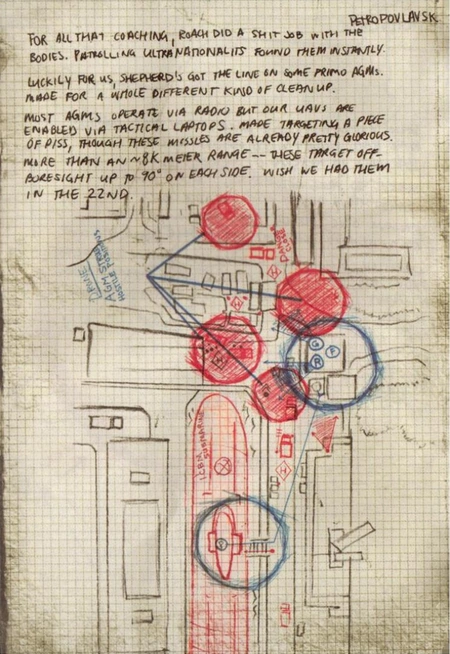 PETROPOVLAVSK
FOR ALL THAT COACHING, ROACH DID A SHIT JOB WITH THE
BODIES. PATROLLING ULTRANATIONALITS FOUND THEM INSTANTLY.
LUCKILY FOR US, SHEPHERD'S GOT THE LINE ON SOME PRIMO AGMS.
MADE FOR A WHOLE DIFFERENT KIND OF CLEANUP.
MOST AGMS OPERATE VIA RADIO BUT OUR UAVS ARE
ENABLED VIA TACTICAL LAPTOPS. MADE TARGETING A PIECE
OF PISS, THOUGH THESE MISSLES ARE ALREADY PRETTY GLORIOUS.
MORE THAN AN ~8K METER RANGE -- THESE TARGET OFF-
BORESIGHT UP TO 90° ON EACH SIDE. WISH WE HAD THEM
IN THE 22ND.
DANGER
CLOSE
AGM STRIKE
HOSTILE POSITIONS
H
H
G
P
R
ICBM
SUBMARINE
H